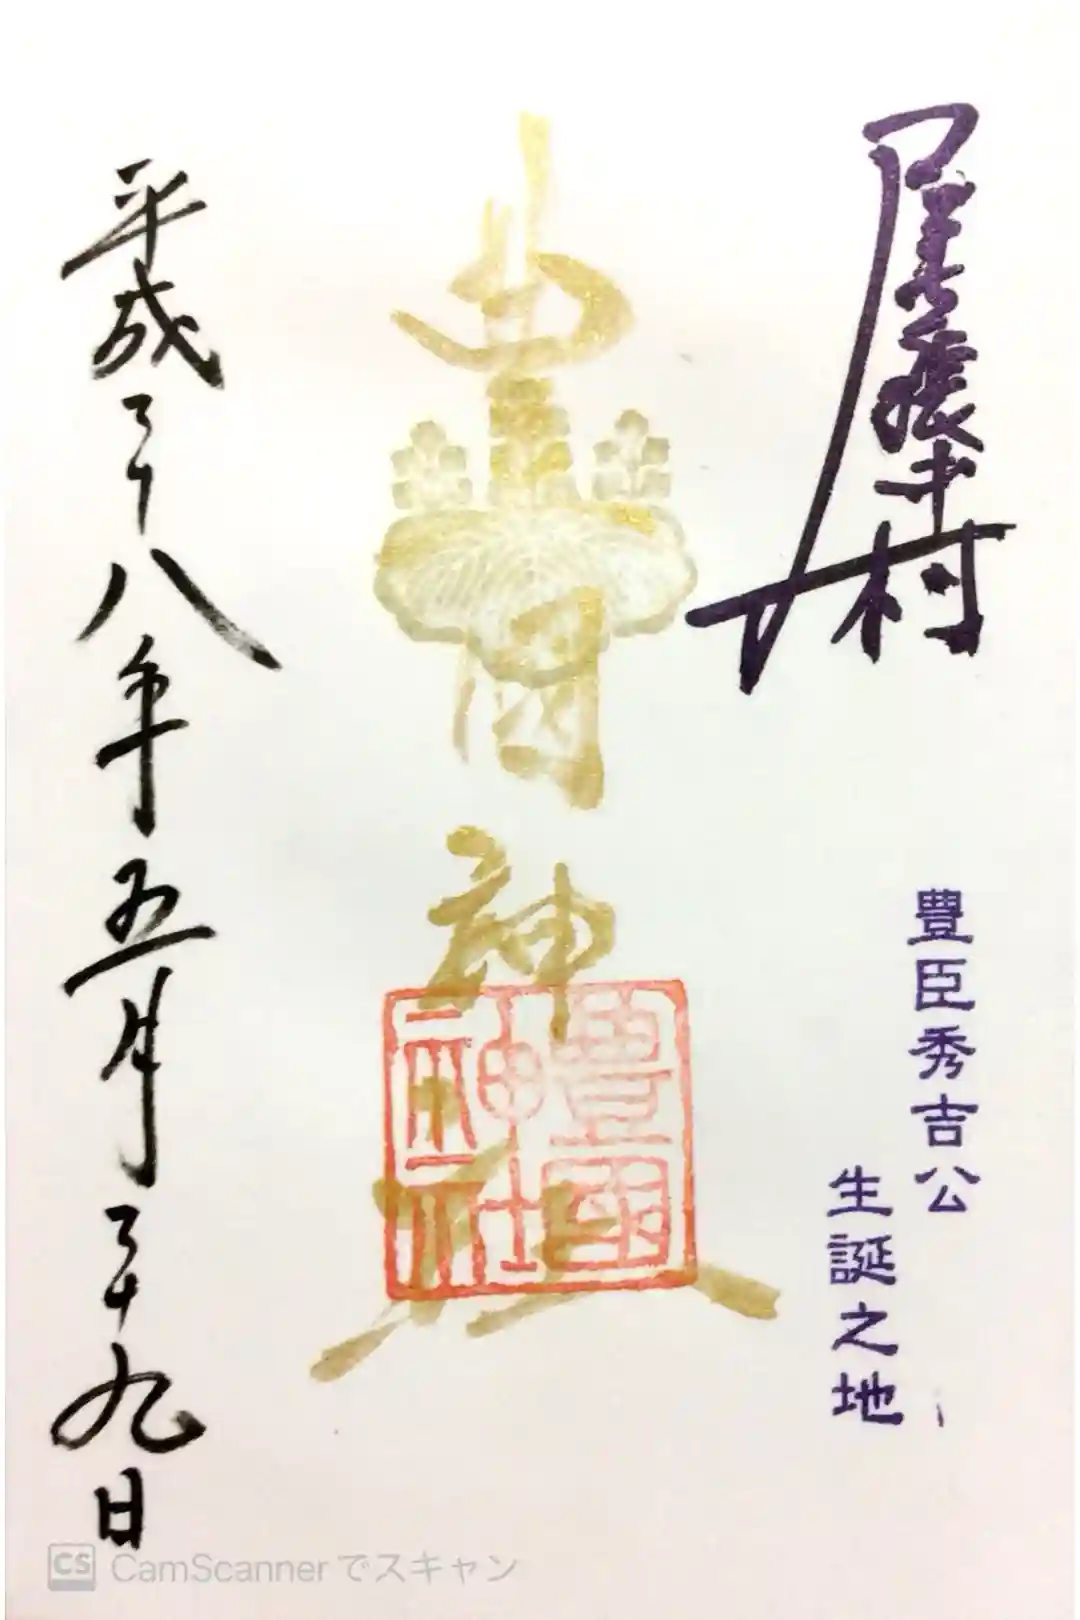 尾張中村
豊臣秀吉公
生誕之地
豊國神社
豐國
神社
平成二十八年五月二十九日
CS CamScannerでスキャン